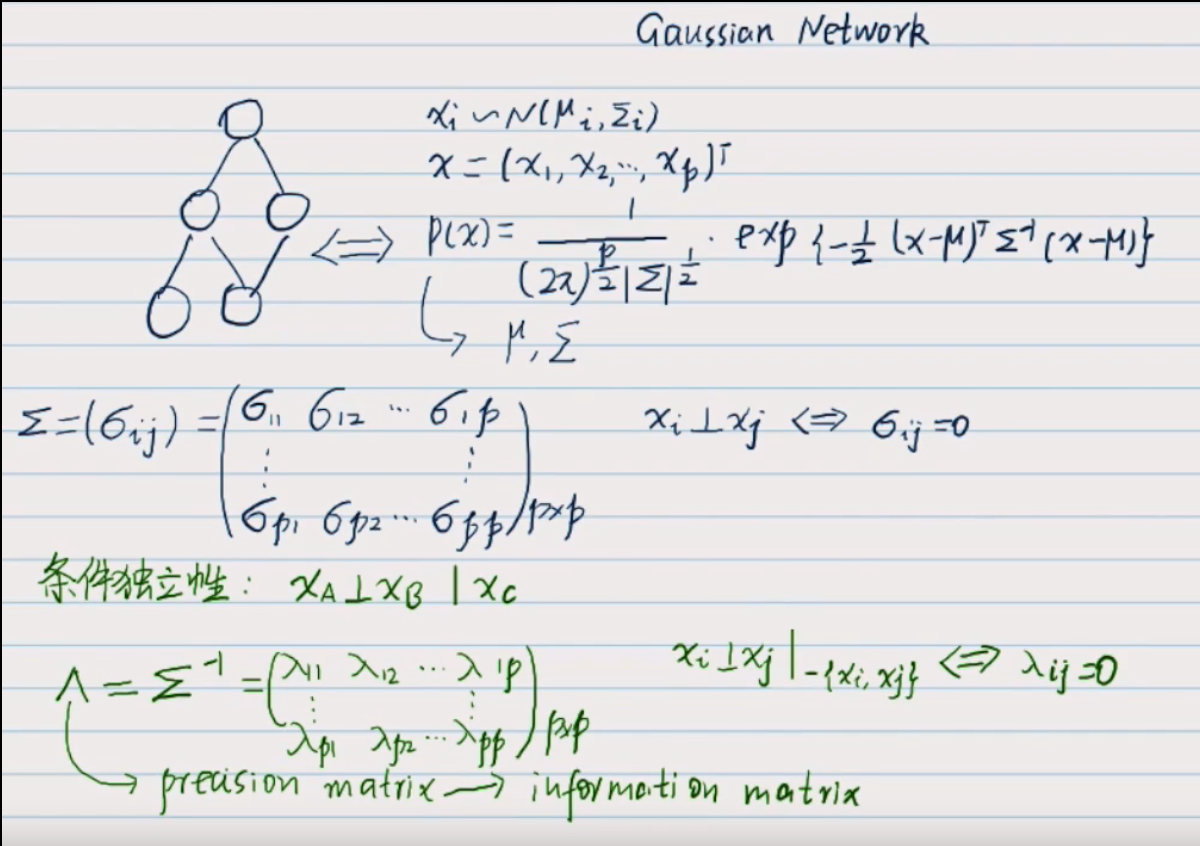 Gaussian Network
xi ∽ N(μi, Σi)
x = (x1, x2, ..., xp)ᵀ
⟺ p(x) = 1 / ((2π)^(p/2) |Σ|^(1/2)) · exp {-1/2 (x-μ)ᵀ Σ⁻¹ (x-μ)}
↳ μ, Σ
Σ = (σij) = (σ11 σ12 ... σ1p
⋮ ⋮
σp1 σp2 ... σpp)p×p
xi ⊥ xj ⟺ σij = 0
条件独立性: xA ⊥ xB | xC
Λ = Σ⁻¹ = (λ11 λ12 ... λ1p
⋮ ⋮
λp1 λp2 ... λpp)p×p
xi ⊥ xj | -{xi, xj} ⟺ λij = 0
↳ precision matrix → information matrix